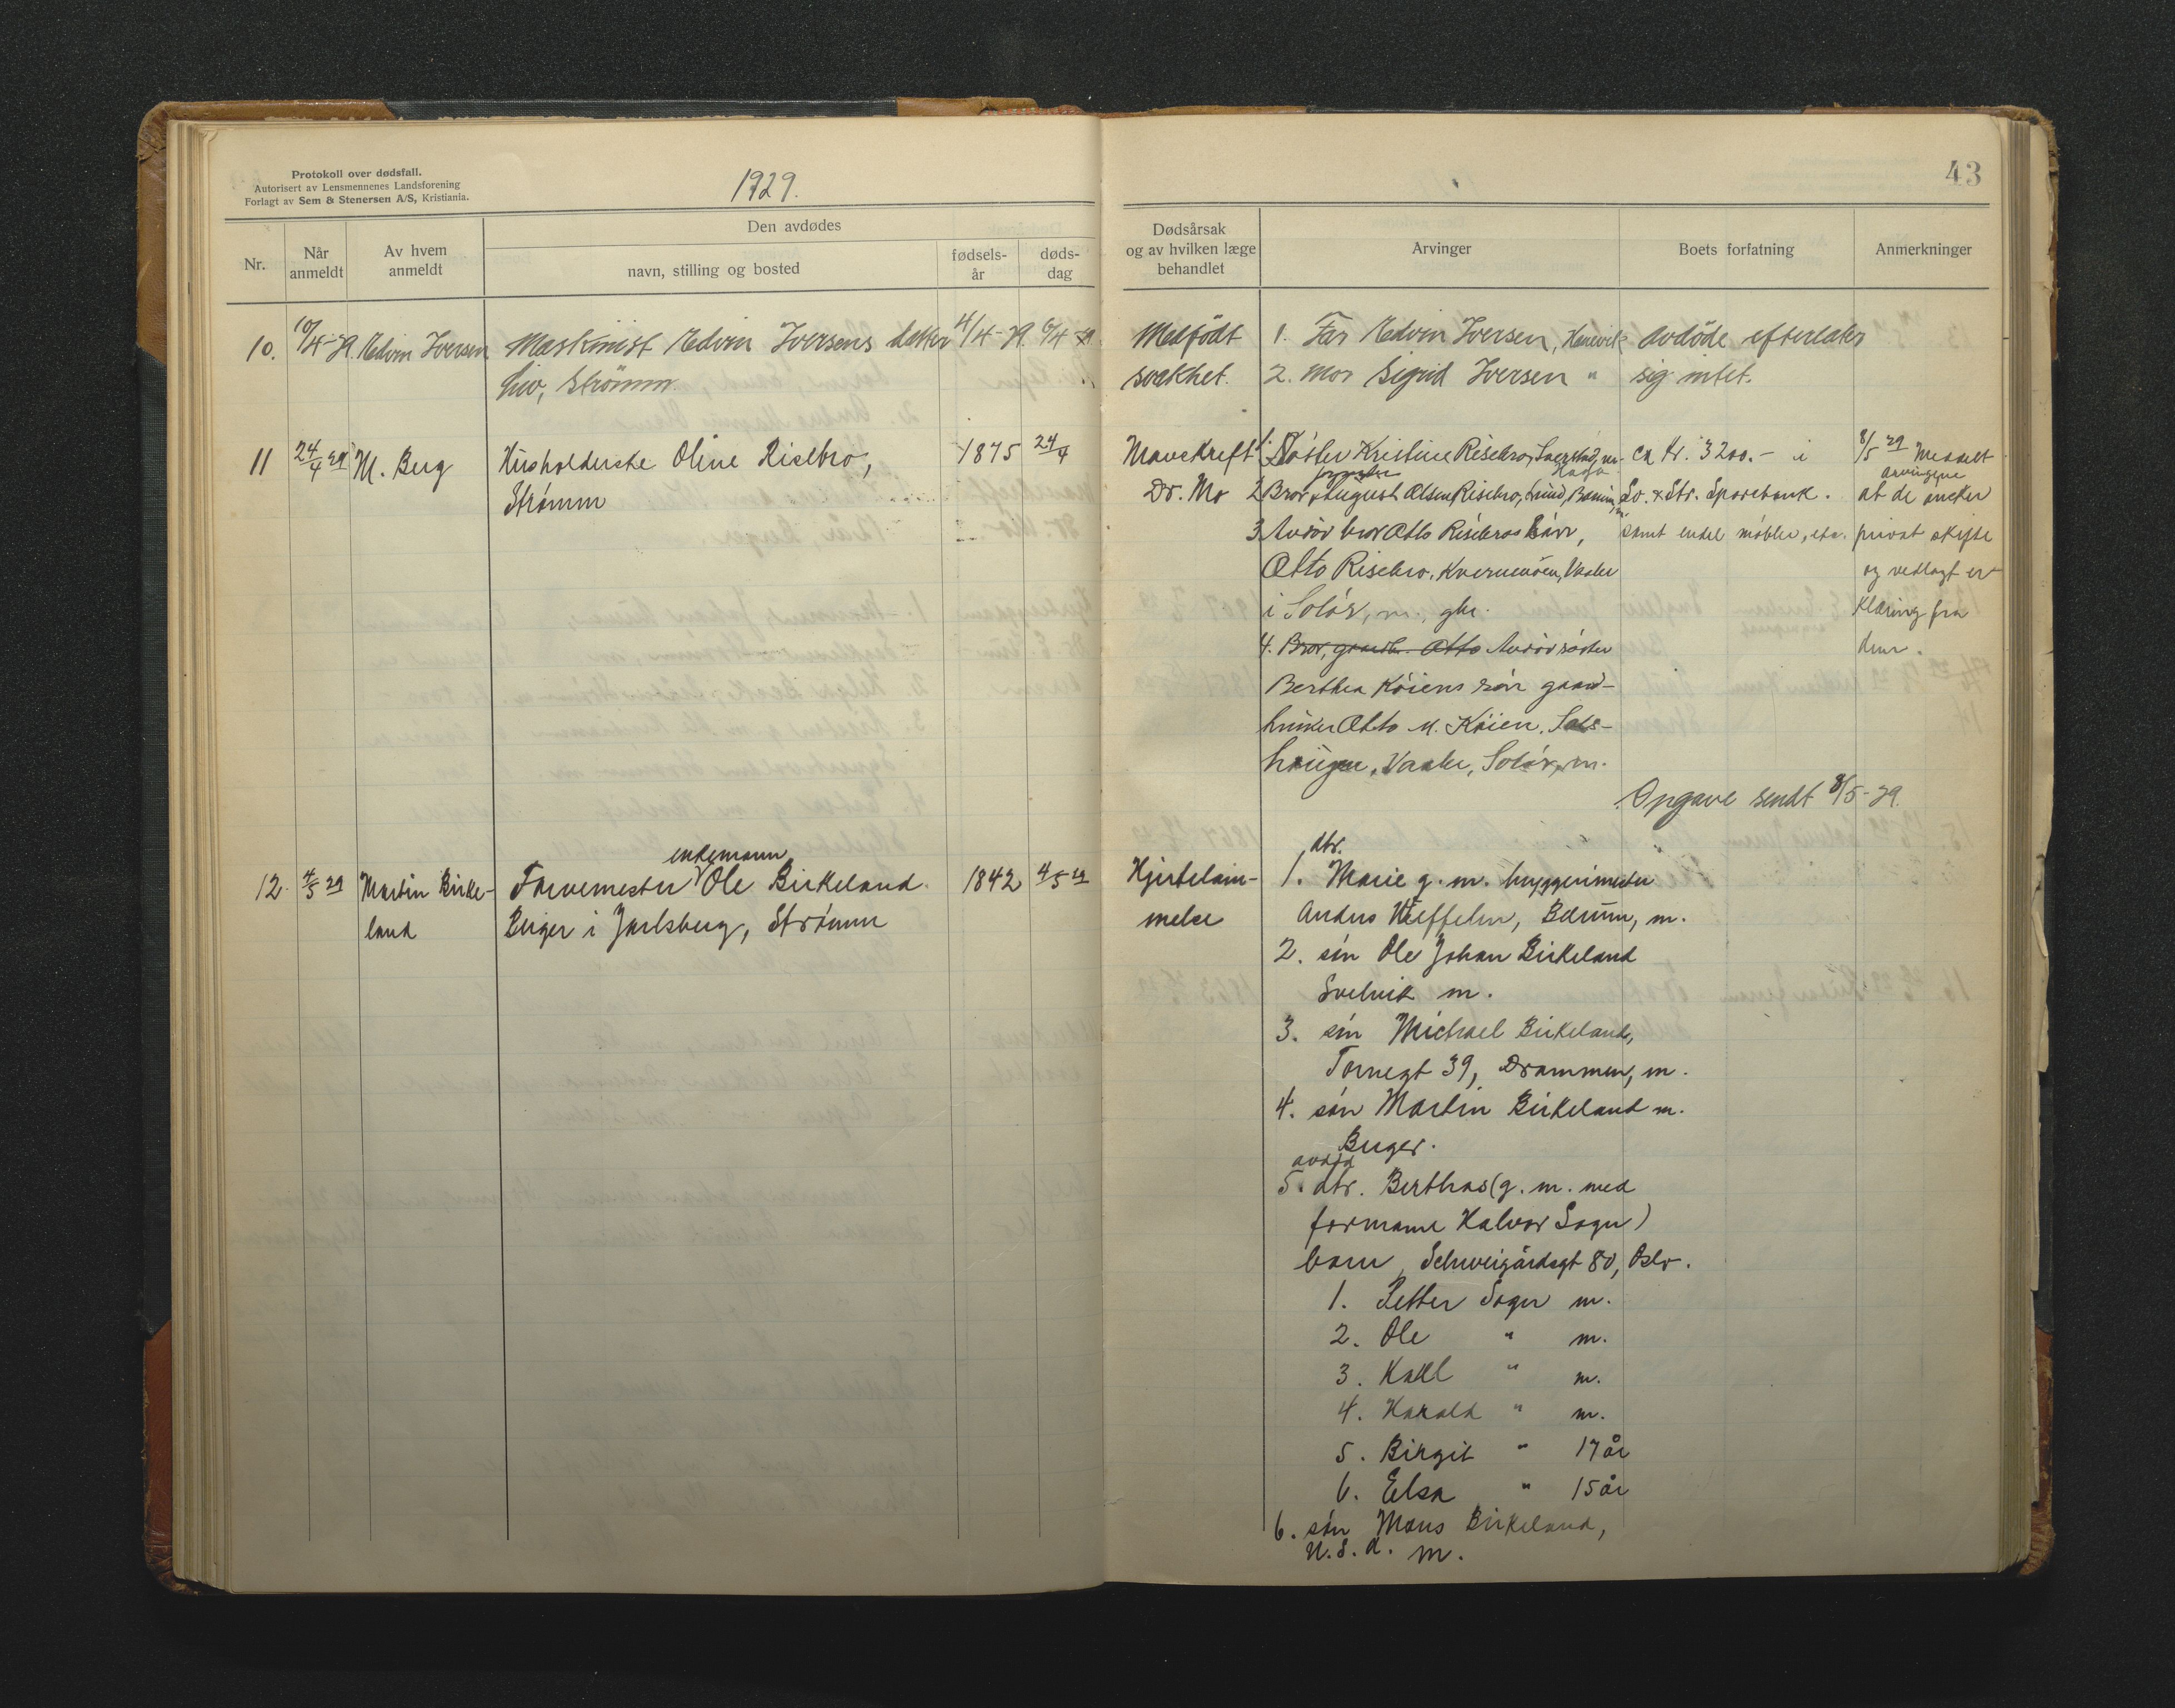 Protokoll over dødsfall.
Autorisert av Lensmennenes Landsforening
Forlagt av Sem & Stenersen A/S, Kristiania.
1929.
43
Nr.
Når anmeldt
Av hvem anmeldt
Den avdødes
navn, stilling og bosted
fødsels-år
døds-dag
Dødsårsak og av hvilken læge behandlet
Arvinger
Boets forfatning
Anmerkninger
10. 10/4-29. Edvin Iversen Maskinist Edvin Iversens datter 4/4-29. 6/4 29 Medfødt 1. Far Edvin Iversen, avdöde efterlater
Liv, Strömm. svakhet. 2. Mor Sigrid Iversen " sig intet.
11 24/4 29 M. Berg Husholderske Oline Risebro, 1875 24/4 Mavekreft 1. Söster Kristine Risebro, m. ca kr. 3200.- i 8/5 29 Meddelt
Strømm Dr. Mo 2 Bror August Olsen Risebro, Lund, Sv. & Str. Sparebank. arvingene at de ønsker
3 Avdöd bror Otto Risebros sön, samt endel møbler, etc. privat skifte
Otto Risebro, Kvernmoen, Vaaler og vedlagt er
i Solör, m., gbr. klæring fra
4. Bror, gaardbr. Otto Avdöd söster dem.
Berthea Köiens sön gaard-
bruker Otto M. Köien, Sols-
haugen, Vaaler, Solör, m.
Opgave sendt 8/5-29.
12. 4/5 29 Martin Birke- Farvemester enkemann Ole Birkeland. 1842 4/5 29 Hjertelam- 1. dtr. Marie g. m. bryggerimester
land Berger i Jarlsberg, Strømm melse Anders Bærum, m.
2. sön Ole Johan Birkeland
Svelvik m.
3. sön Michael Birkeland,
Tornegt 39, Drammen, m.
4. sön Martin Birkeland m.
Berger.
5. avdød dtr. Berthas (g. m. med
formann Halvor Sogn)
barn, Schweigårdsgt 80, Oslo.
1. Petter Sogn m.
2. Ole " m.
3. Karl " m.
4. Harald " m.
5. Birgit " 17 år
6. Elsa " 15 år
6. sön Mons Birkeland,
U.S.A. m.